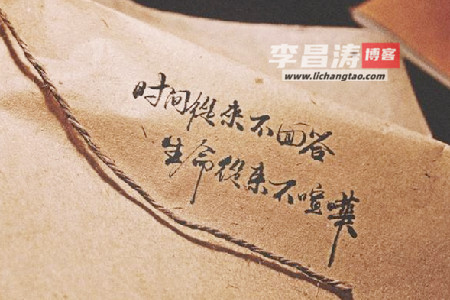 李昌涛博客
www.lichangtao.com
时间从来不回答
生命从来不喧哗